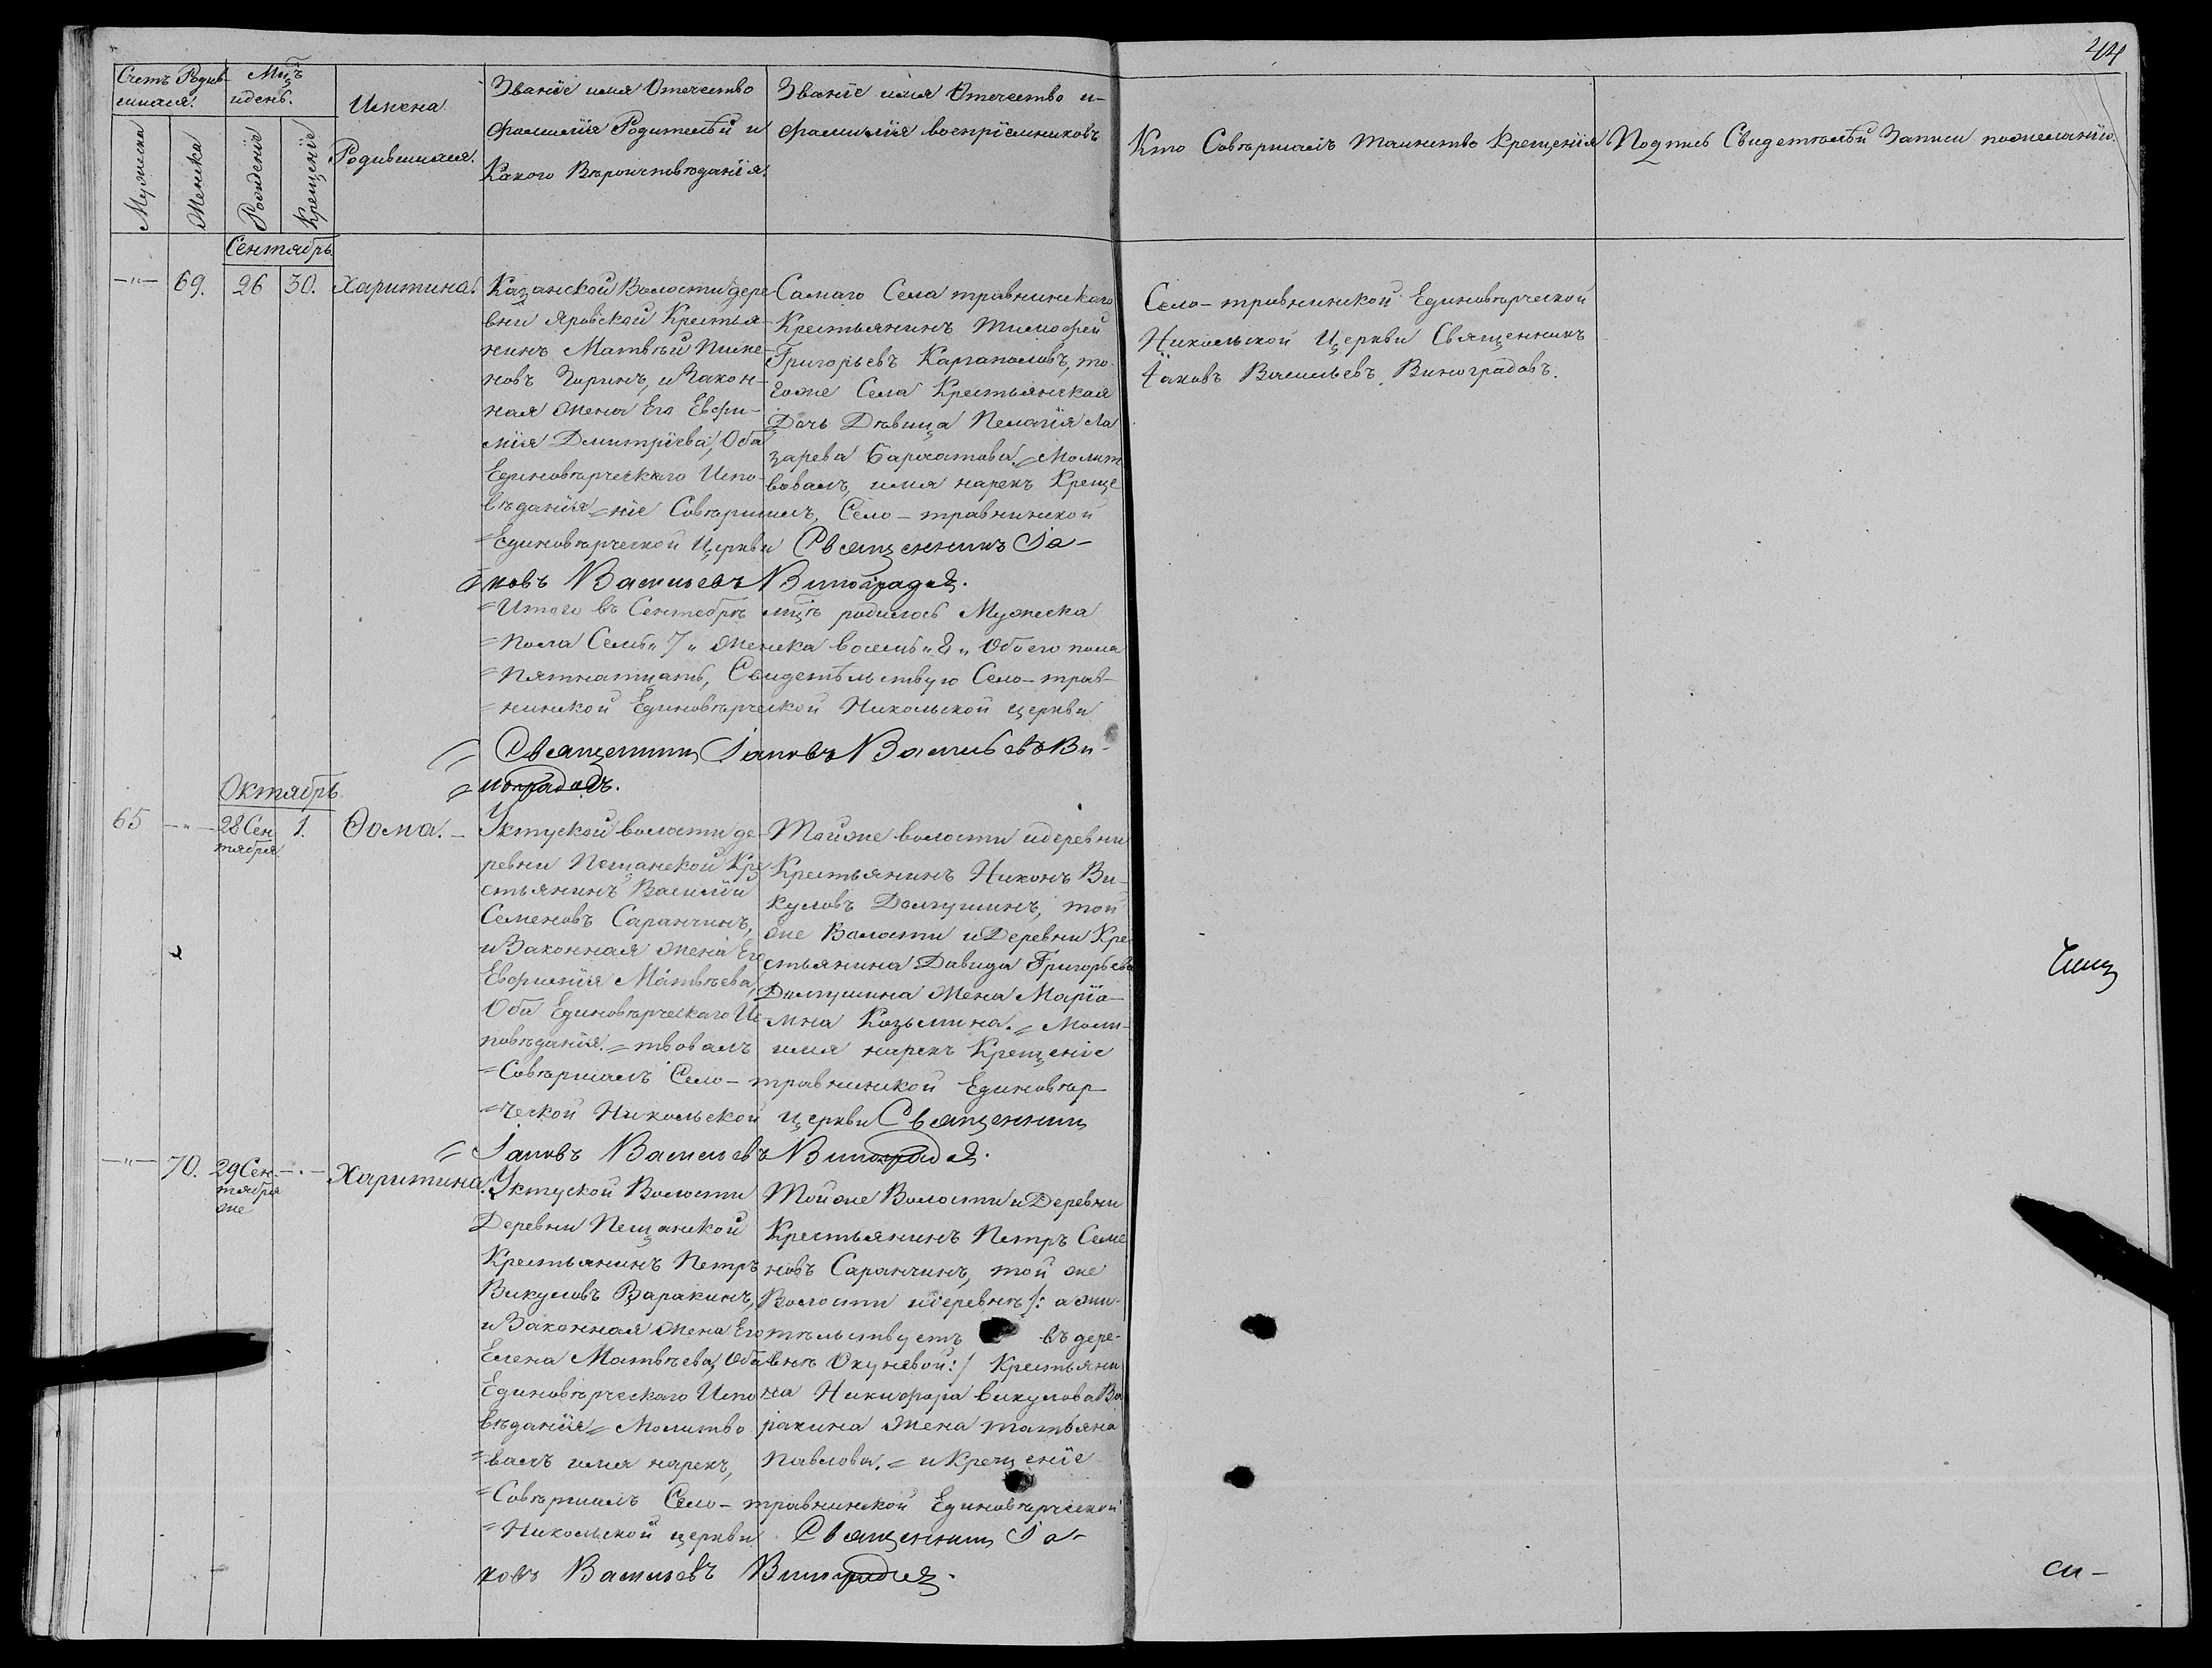 44
Счетъ Родив-
шихся.
Мужеска
Женска
Мцъ
и день.
Рожденіе
Крещеніе
Имена
Родившихся.
Званіе имя Отечество
Фамилія Родителей и
Какого Вѣроисповѣданія.
Званіе имя Отечество и
Фамилія воспріемниковъ
Кто Совѣршалъ таинство Крещенія
Подпись Свидетелей Записи пожеланію.
Сентябрь
—„— 69. 26 30. Харитина.
Казанской Волости дере
вни Яровской Крестья-
нинъ Матвѣй Пиме-
новъ Зоринъ, и Закон-
ная жена Его Евфи-
мія Дмитріева, Оба
Единовѣрческаго Испо-
вѣданія
Самаго Села травнинскаго
Крестьянинъ Тимофей
Григорьевъ Каргаполовъ, то-
гоже Села Крестьянская
Дочь Дѣвица Пелагія Ла
зарева Бархатова. = Молит
вовалъ, имя нарекъ Креще
= ніе Совѣршилъ, Село-травнинской
= Единовѣрческой Церкви Священникъ Іа-
ковъ Васильевъ Виноградовъ.
Село-травнинской Единовѣрческой
Никольской Церкви Священникъ
Іаковъ Васильевъ Виноградовъ.
= Итого въ Сентебрѣ мцѣ родилось Мужеска
= Пола Семь „7„ Женска восемь „8„ Обоего пола
= Пятнатцать, Свидетѣльствую Село-трав-
= нинской Единовѣрческой Никольской церкви
= Священникъ Іаковъ Васильевъ Ви-
= ноградовъ.
Октябрь.
65 —„— 28 Сен
тября
1. Ѳома. —
Уктуской волости де-
ревни Пещанской Кре
стьянинъ Василій
Семеновъ Саранчинъ,
и Законная жена Его
Евфимія Матвѣева,
Оба Единовѣрческаго Ис
повѣданія.
Тойже волости и деревни
Крестьянинъ Никонъ Ви-
куловъ Долгушинъ, той
же Волости и Деревни Кре-
стьянина Давида Григорьева
Долгушина жена Маріа-
мна Козьмина. = Моли-
= твовалъ имя нарекъ Крещеніе
= Совѣршалъ Село-травнинской Единовѣр-
= ческой Никольской церкви Священникъ
= Іаковъ Васильевъ Виноградовъ.
—„— 70. 29 Сен-
тября
же
—„— Харитина.
Уктуской Волости
Деревни Пещанской
Крестьянинъ Петръ
Викуловъ Варакинъ,
и Законная жена Его
Елена Матвѣева, Оба
Единовѣрческаго Испо
вѣданія = Молитво
= валъ имя нарекъ,
Тойже Волости и Деревни
Крестьянинъ Петръ Семе
новъ Саранчинъ, той же
Волости и деревнѣ /: а жи-
тѣльствуетъ въ дере-
внѣ Окуневой :/ Крестьяни
на Никифора Викулова Ва
ракина жена татьяна
Павлова. = и Крещеніе
= Совѣршилъ Село-травнинской Единовѣрческой
= Никольской церкви Священникъ Іа-
ковъ Васильевъ Виноградовъ.
си-